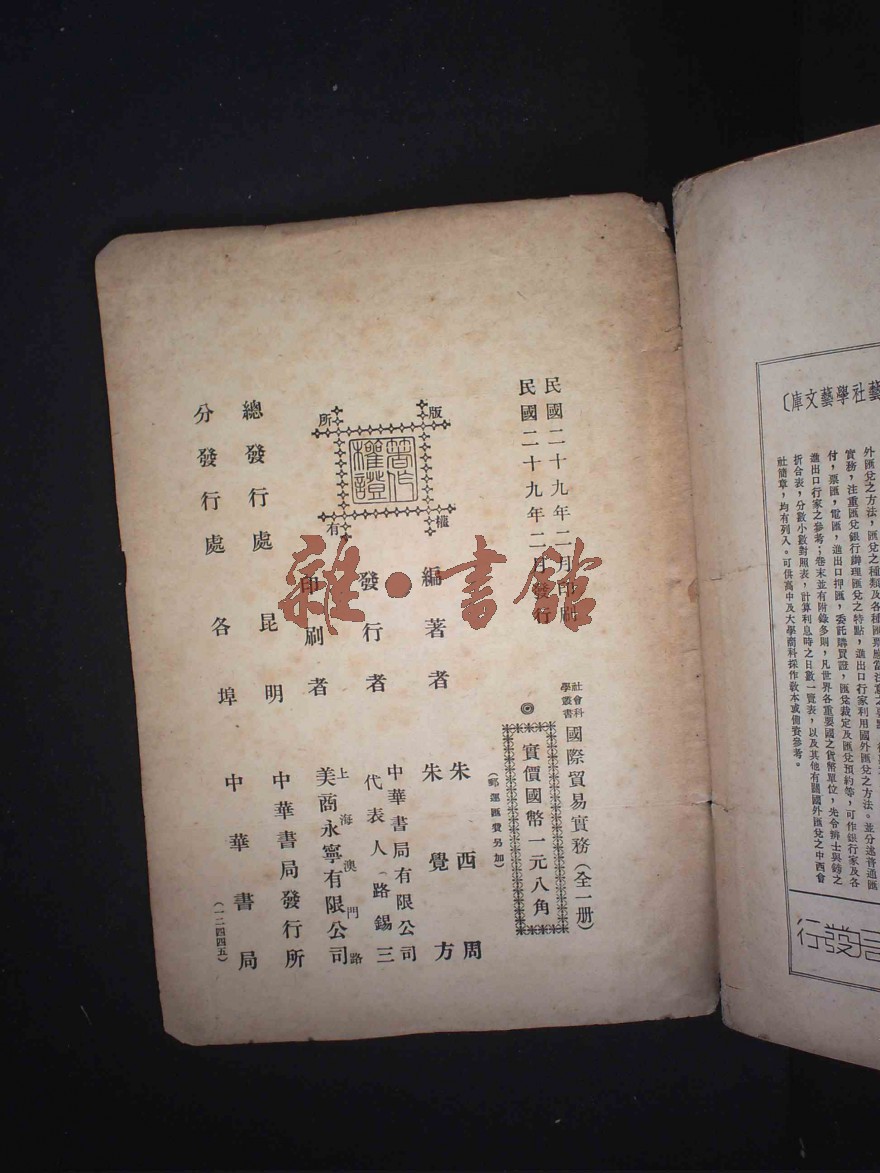 民國二十九年二月印刷
民國二十九年二月發行
社會科學叢書
國際貿易實務(全一册)
◎實價國幣一元八角
(郵運匯費另加)
版權所有
著作權證
編著者
朱西周
朱覺方
發行者
中華書局有限公司
代表人 路錫三
印刷者
上海澳門路
美商永寧有限公司
總發行處 昆明 中華書局發行所
分發行處 各埠 中華書局
(一二四四五)
雜·書館
藝社學藝文庫〕
外匯兌之方法,匯兌之種類及各種匯票應當注意之
實務,注重匯兌銀行辦理匯兌之特點,進出口行家利用國外匯兌之方法。並分述普通匯
付,票匯,電匯,進出口押匯,委託購買證,匯兌裁定及匯兌預約等,可作銀行家及各
進出口行家之參考;卷末並有附錄多則,凡世界各重要國之貨幣單位,先令辨士與鎊之
折合表,分數小數對照表,計算利息時之日數一覽表,以及其他有關國外匯兌之中西會
社簡章,均有列入。可供高中及大學商科採作教本或備資參考。
發行